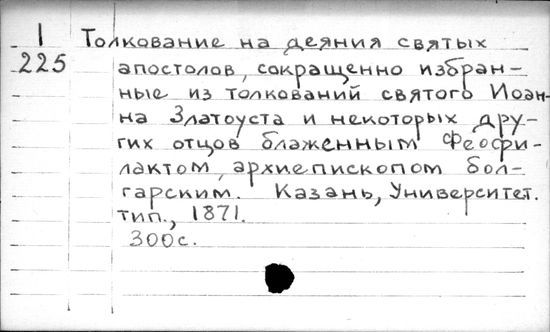 1 Толкование на деяния святых
225 апостолов, сокращенно избран-
ные из толкований святого Иоан-
на Златоуста и некоторых дру-
гих отцов блаженным Феофи-
лактом, архиепископом бол-
гарским. Казань, Университет.
тип., 1871.
300с.